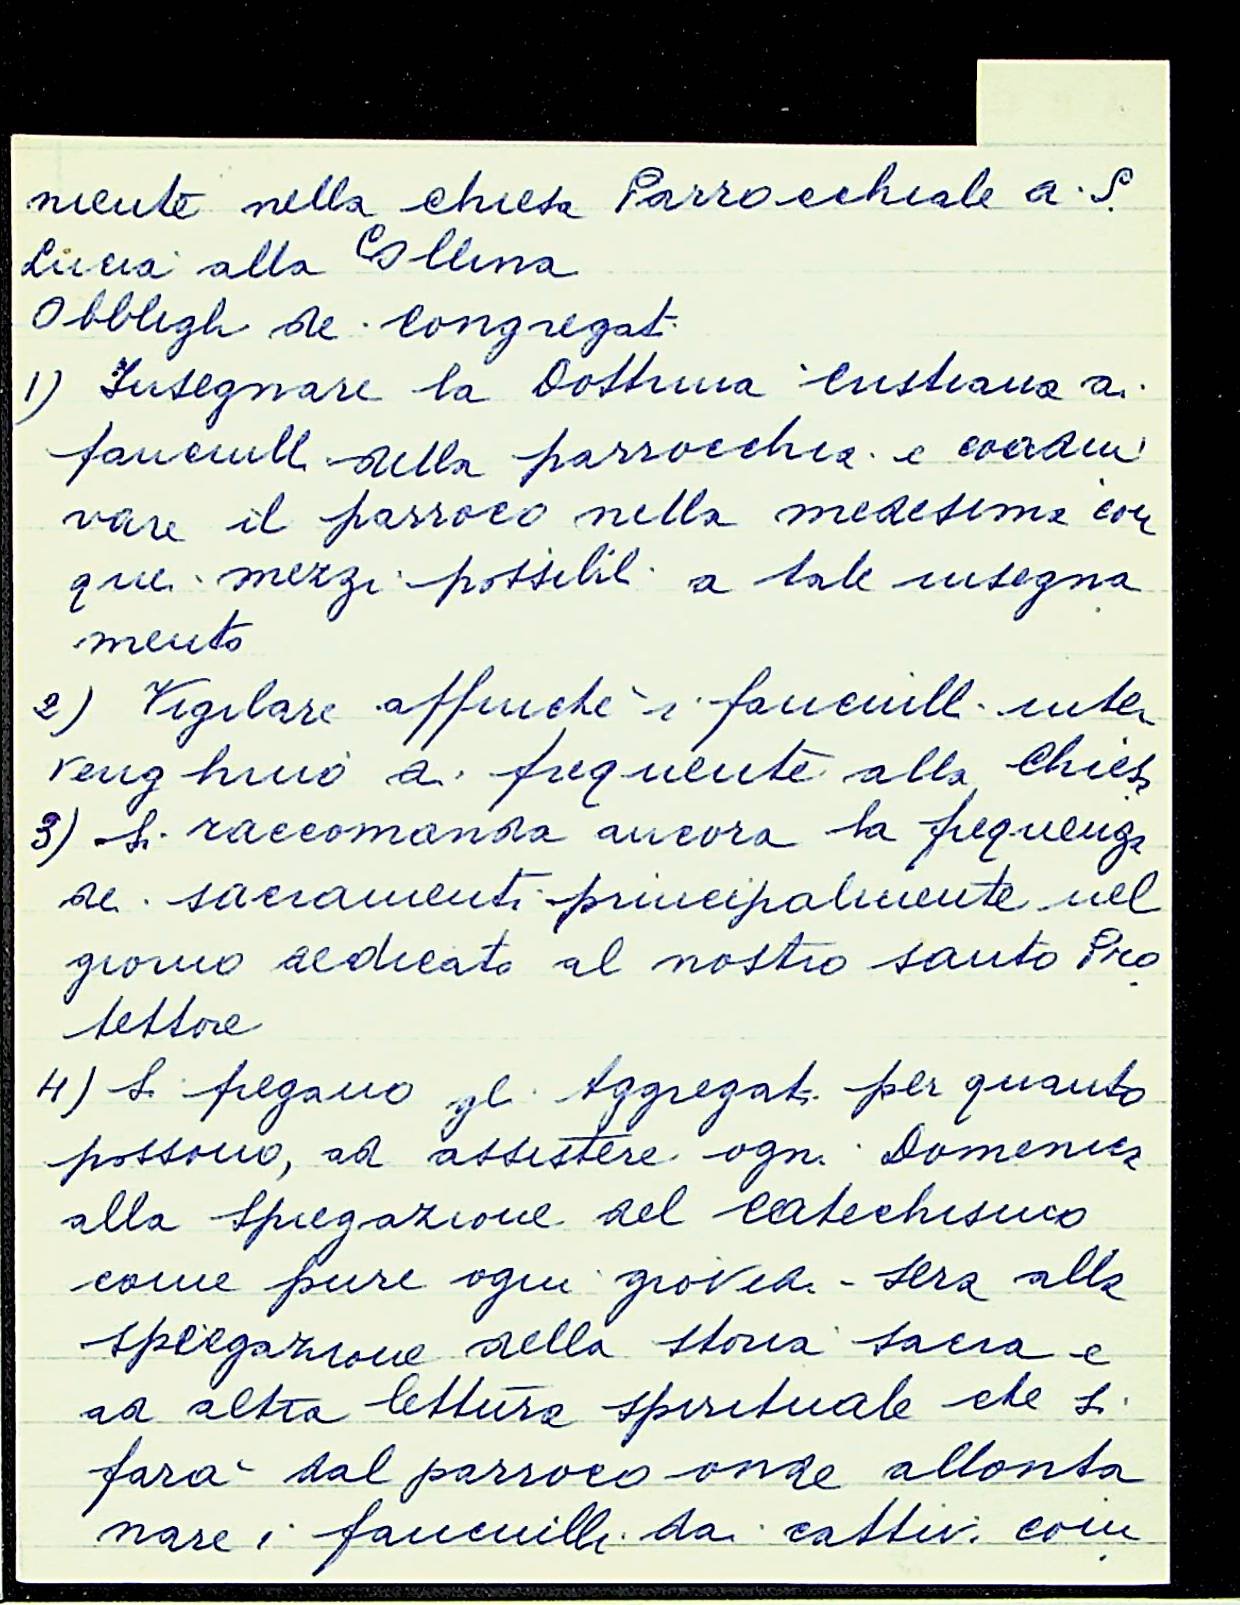 mente nella chiesa Parrocchiale a S.
Lucia alla Collina
Obblighi dei congregati
1) Insegnare la Dottrina cristiana ai
fanciulli della parrocchia e coadiu
vare il parroco nella medesima con
quei mezzi possibili a tale insegna
mento
2) Vigilare affinché i fanciulli inter
venghino a frequente alla Chiesa
3) Si raccomanda ancora la frequenza
dei sacramenti principalmente nel
giorno dedicato al nostro santo Pro
tettore
4) Si pregano gli Aggregati per quanto
possono, ad assistere ogni Domenica
alla spiegazione del Catechismo
come pure ogni giovedi - sera alla
spiegazione della storia sacra e
ad altra lettura spirituale che si
farà dal parroco onde allonta
nare i fanciulli dai cattivi com